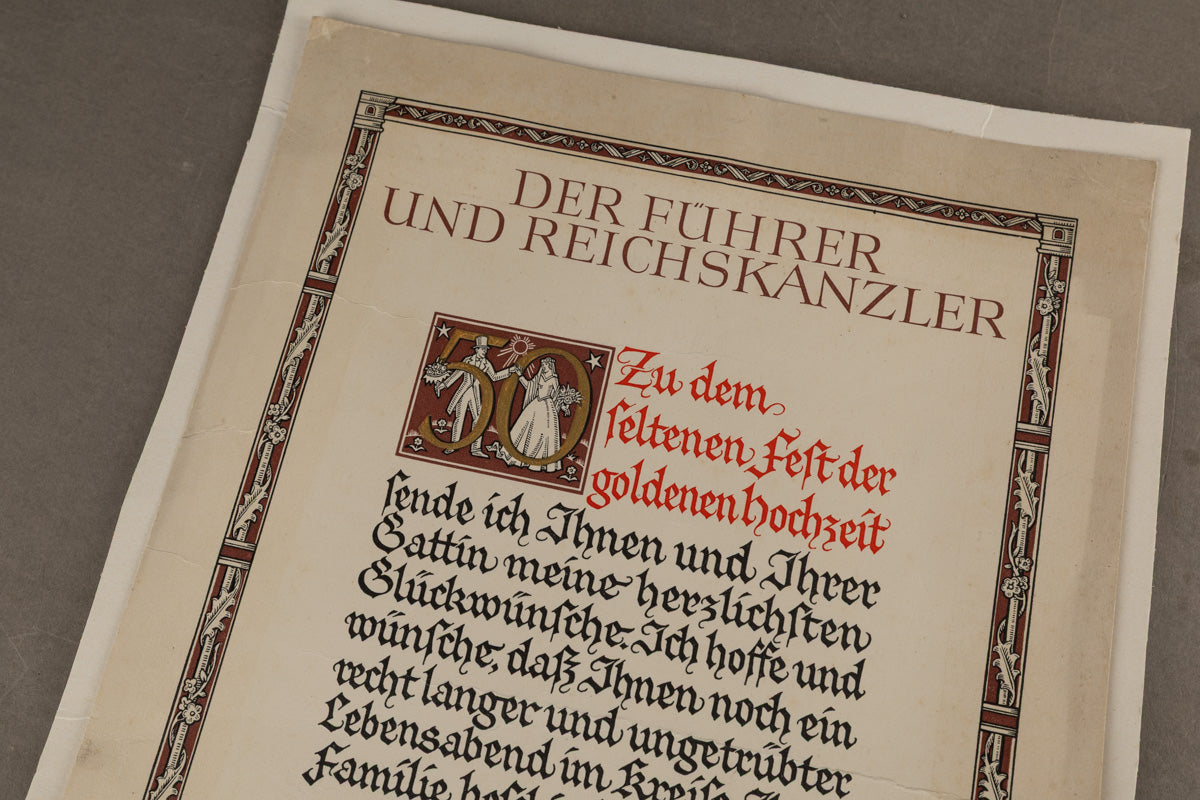 DER FÜHRER
UND REICHSKANZLER
50
Zu dem
seltenen Fest der
goldenen Hochzeit
sende ich Ihnen und Ihrer
Gattin meine herzlichsten
Glückwünsche. Ich hoffe und
wünsche, daß Ihnen noch ein
recht langer und ungetrübter
Lebensabend im Kreise
Familie